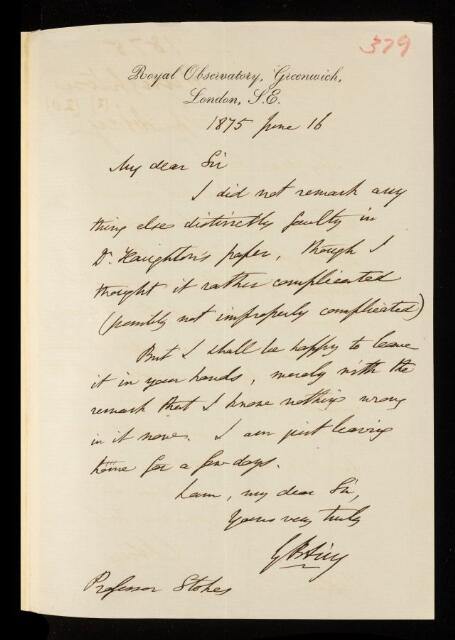 379
Royal Observatory, Greenwich,
London, S.E.
1875 June 16
My dear Sir
I did not remark any
thing else distinctly faulty in
Dr. Haughton's paper, though I
thought it rather complicated
(possibly not improperly complicated)
But I shall be happy to leave
it in your hands, merely with the
remark that I know nothing wrong
in it now. I am just leaving
home for a few days.
I am, my dear Sir,
Yours very truly
G B Airy
Professor Stokes